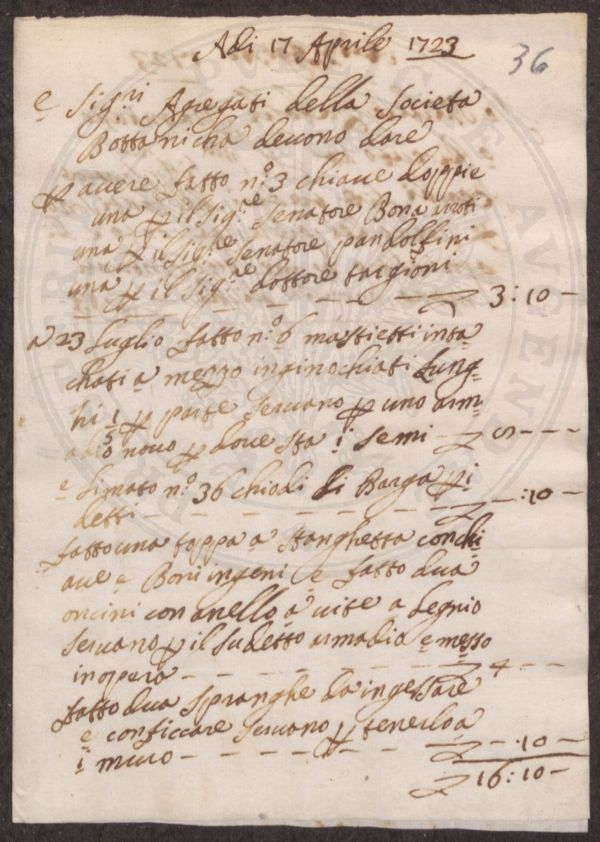 Adi 17 Aprile 1723
36
e Sig.ri Agregati della Societa
Bottanicha deuono dare
p auere fatto n.o 3 chiaue doppie
una p il Sig.re Senatore Bonaroti
una p il Sig.re Senatore pandolfini
una p il Sig.re dottore targioni
3:10 -
a 23 Luglio fatto n.o 6 mastietti inta
chati a mezzo inginochiati Lung=
hi p parte seruano p uno arm=
adio nouo p doue sta i semi
e limato n.o 36 chiodi di Barga pi
detti - :10 -
fatto una toppa a stanghetta con chi
aue e Boni ingeni e fatto dua
oncini con anello a uite a Legnio
seruano p il sudetto armadio e messo
in opera 4 - -
fatto dua spranghe da ingessare
e conficcare seruano p tenerloa
i muro - :10 -
16:10 -